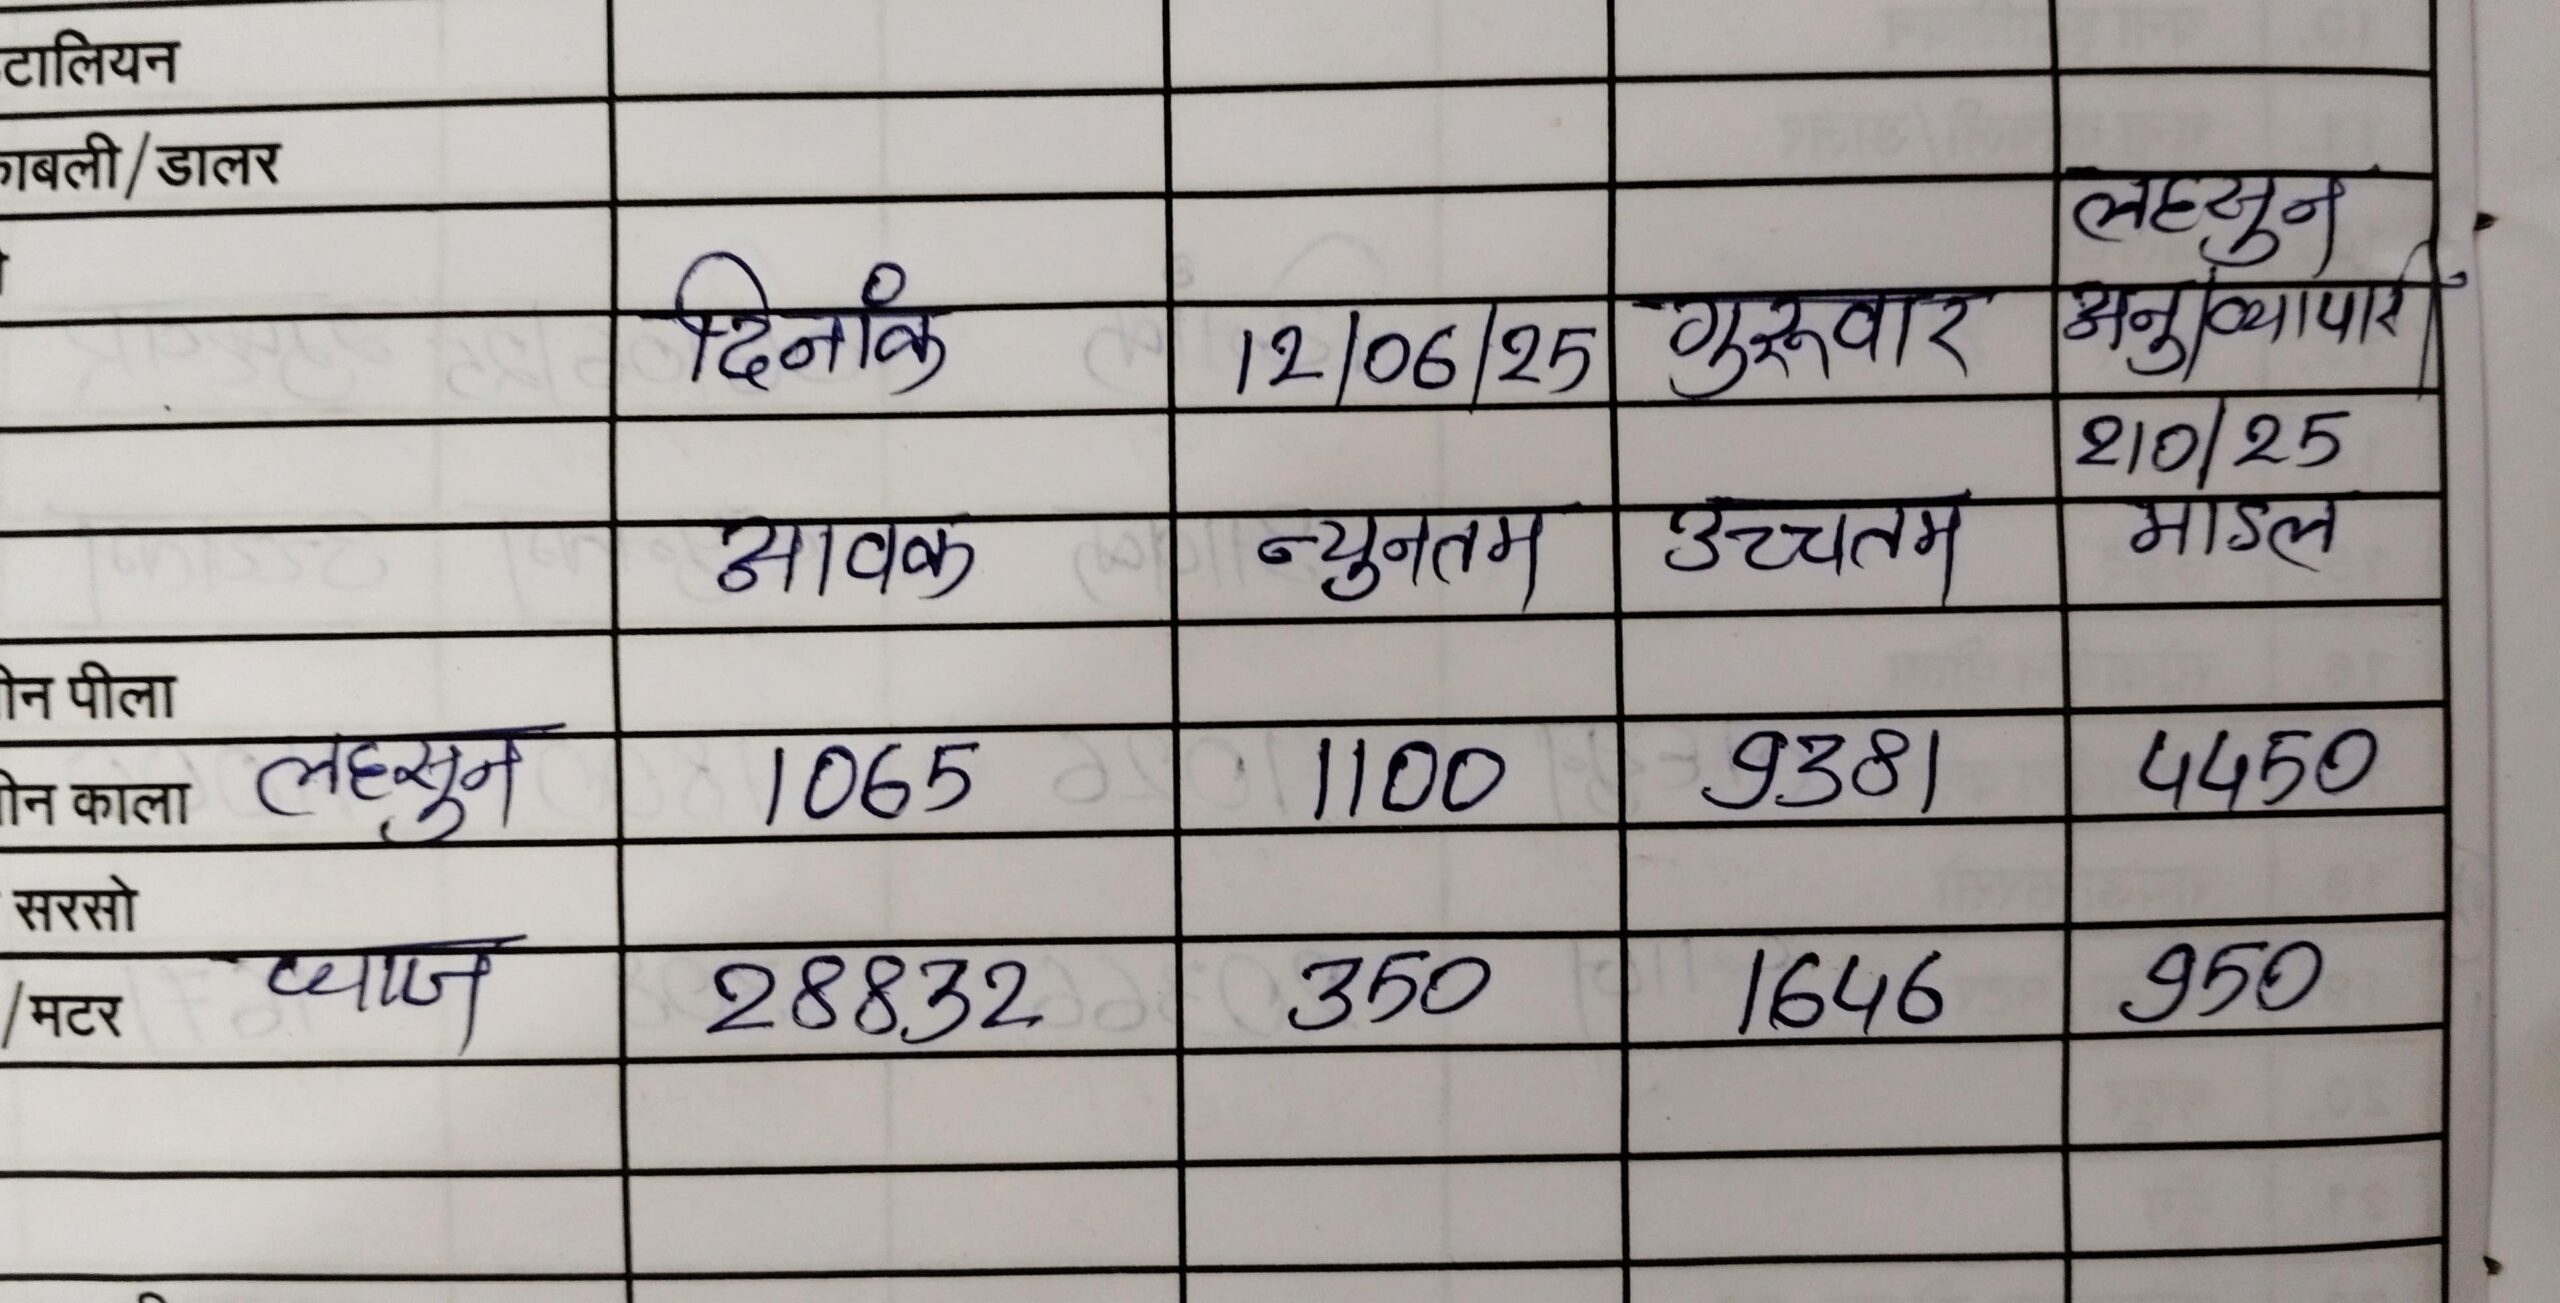 टालियन
काबली/डालर
लहसुन
दिनांक 12/06/25 गुरूवार अनु/व्यापारी
210/25
आवक न्युनतम उच्चतम माडल
पीला
काला लहसुन 1065 1100 9381 4450
सरसो
/मटर प्याज 28832 350 1646 950